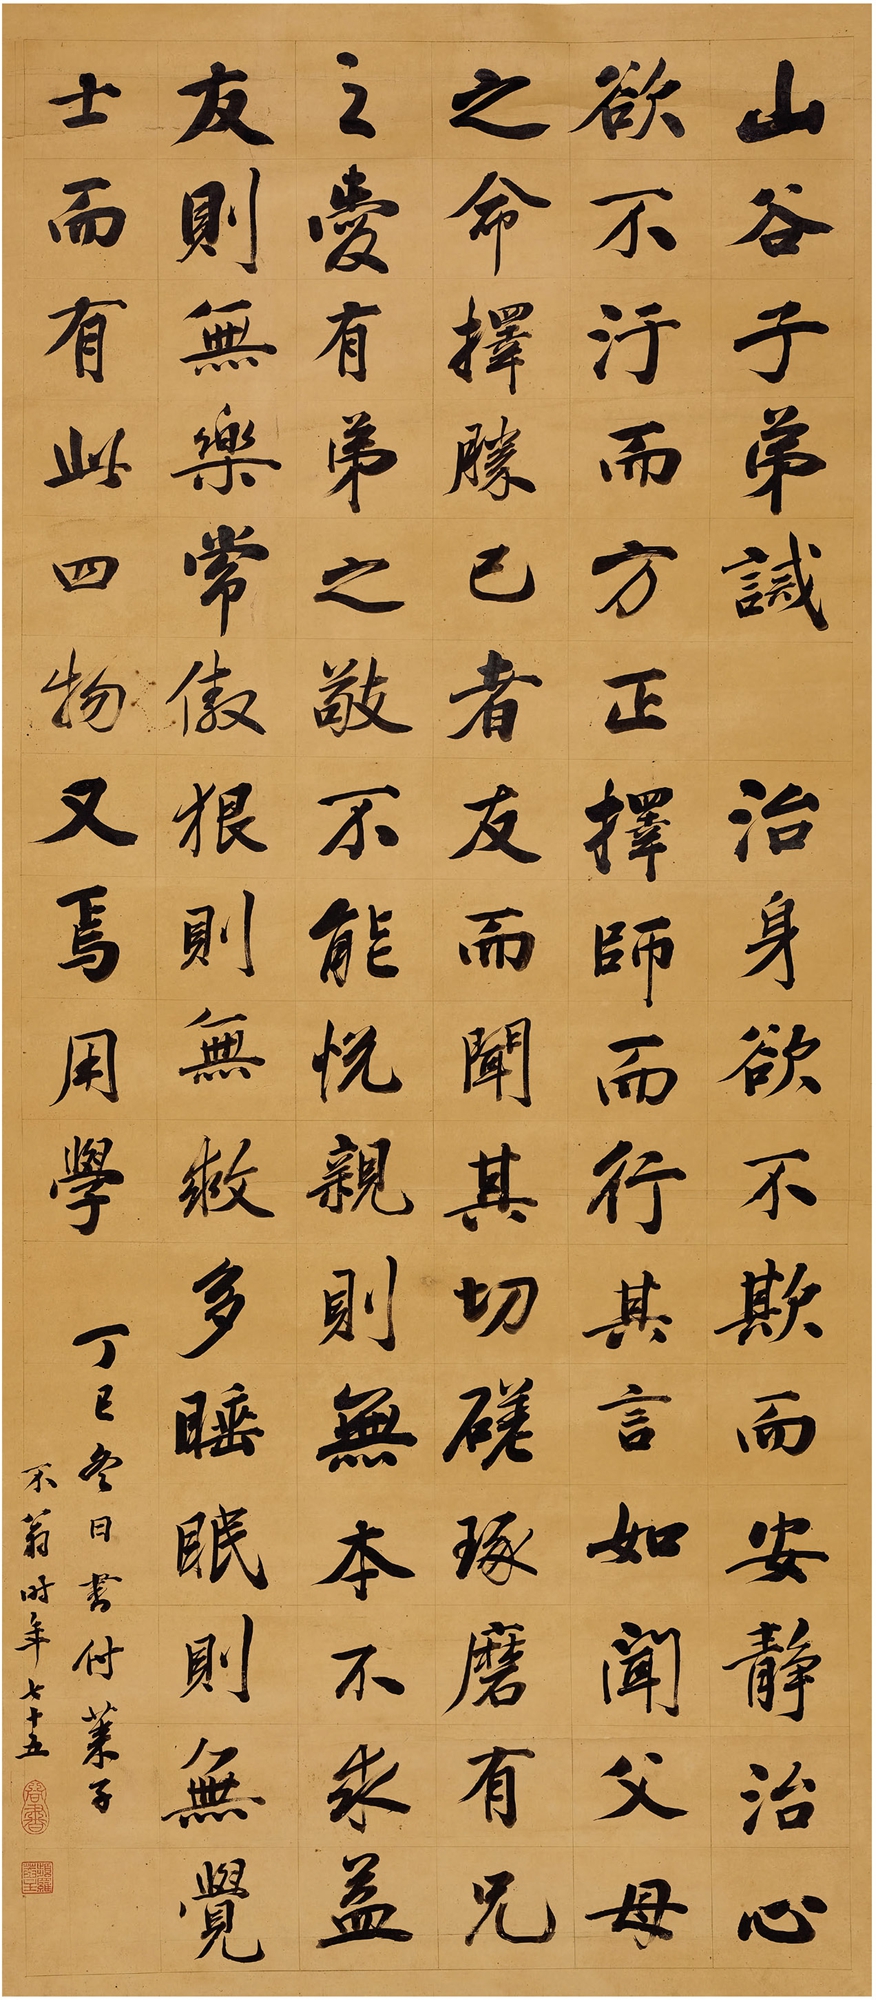 山谷子弟誡 治身欲不欺而安靜治心
欲不汙而方正擇師而行其言如聞父母
之命擇勝己者友而聞其切磋琢磨有兄
之愛有弟之敬不能悦親則無本不求益
友則無樂常傲狠則無救多睡眠則無覺
士而有此四物又焉用學
丁巳冬日書付葉子
不翁時年七十五